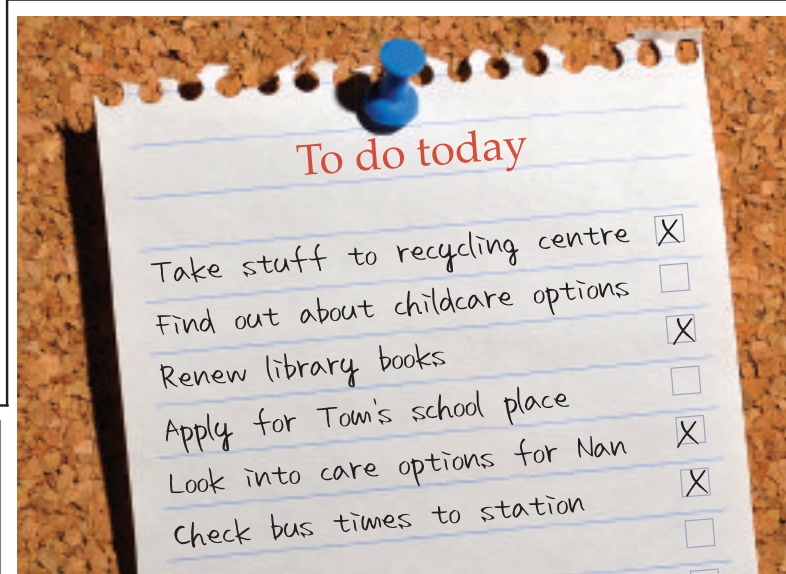 To do today
Take stuff to recycling centre X
Find out about childcare options
Renew library books X
Apply for Tom's school place
Look into care options for Nan X
Check bus times to station X